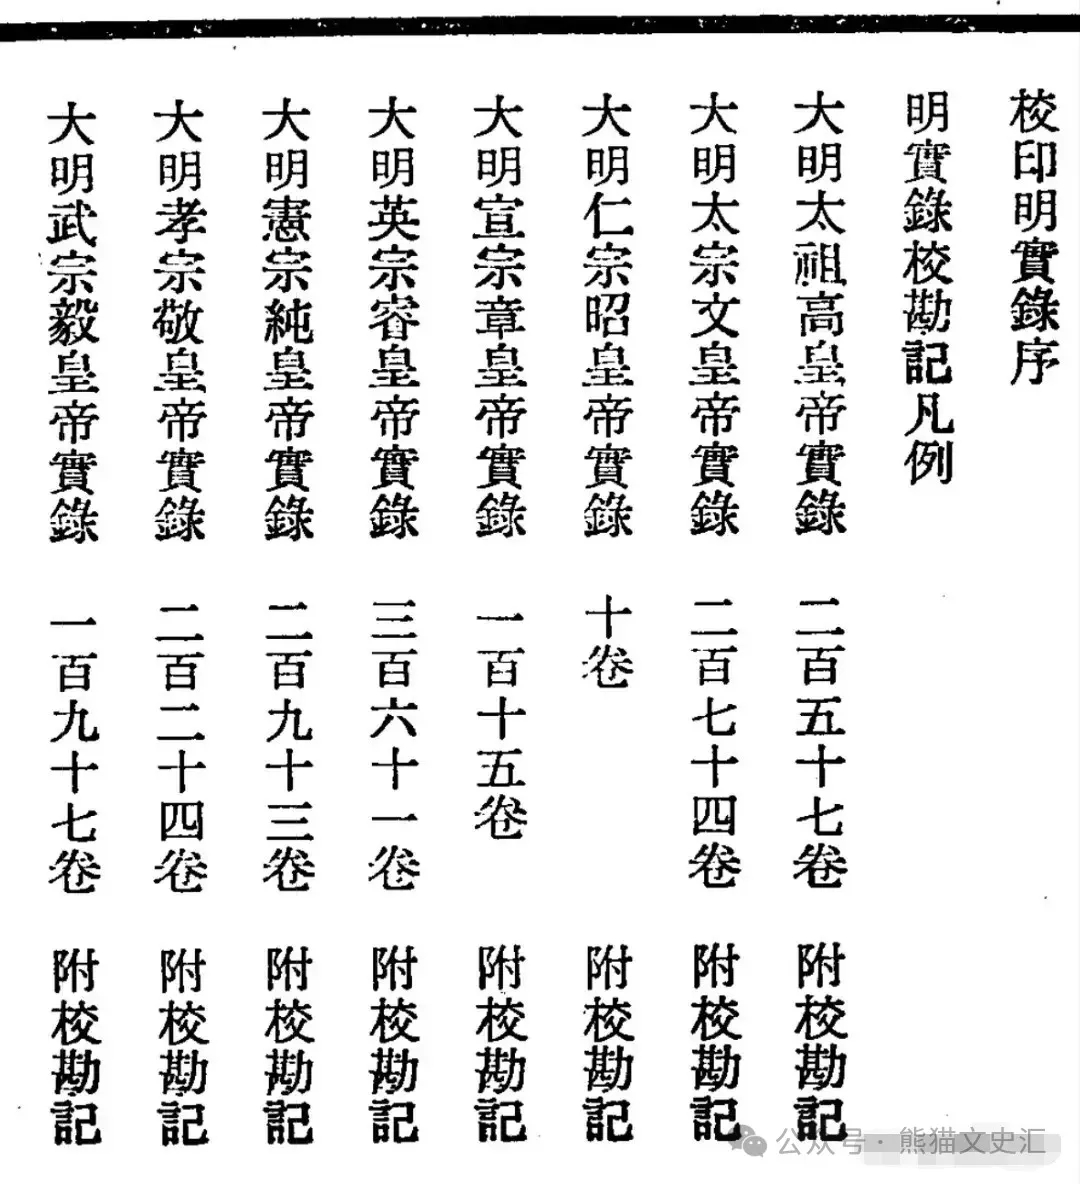 校印明實錄序
明實錄校勘記凡例
大明太祖高皇帝實錄 二百五十七卷 附校勘記
大明太宗文皇帝實錄 二百七十四卷 附校勘記
大明仁宗昭皇帝實錄 十卷 附校勘記
大明宣宗章皇帝實錄 一百十五卷 附校勘記
大明英宗睿皇帝實錄 三百六十一卷 附校勘記
大明憲宗純皇帝實錄 二百九十三卷 附校勘記
大明孝宗敬皇帝實錄 二百二十四卷 附校勘記
大明武宗毅皇帝實錄 一百九十七卷 附校勘記
公众号·熊猫文史汇